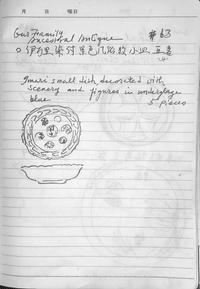 月 日 曜日
Our Framily
Ancestral Antique #63
○ 伊万里染付 景色人物紋小皿 五客
Imari small dish, decorated with
scenery and figures in underglaze
blue
5 pieces